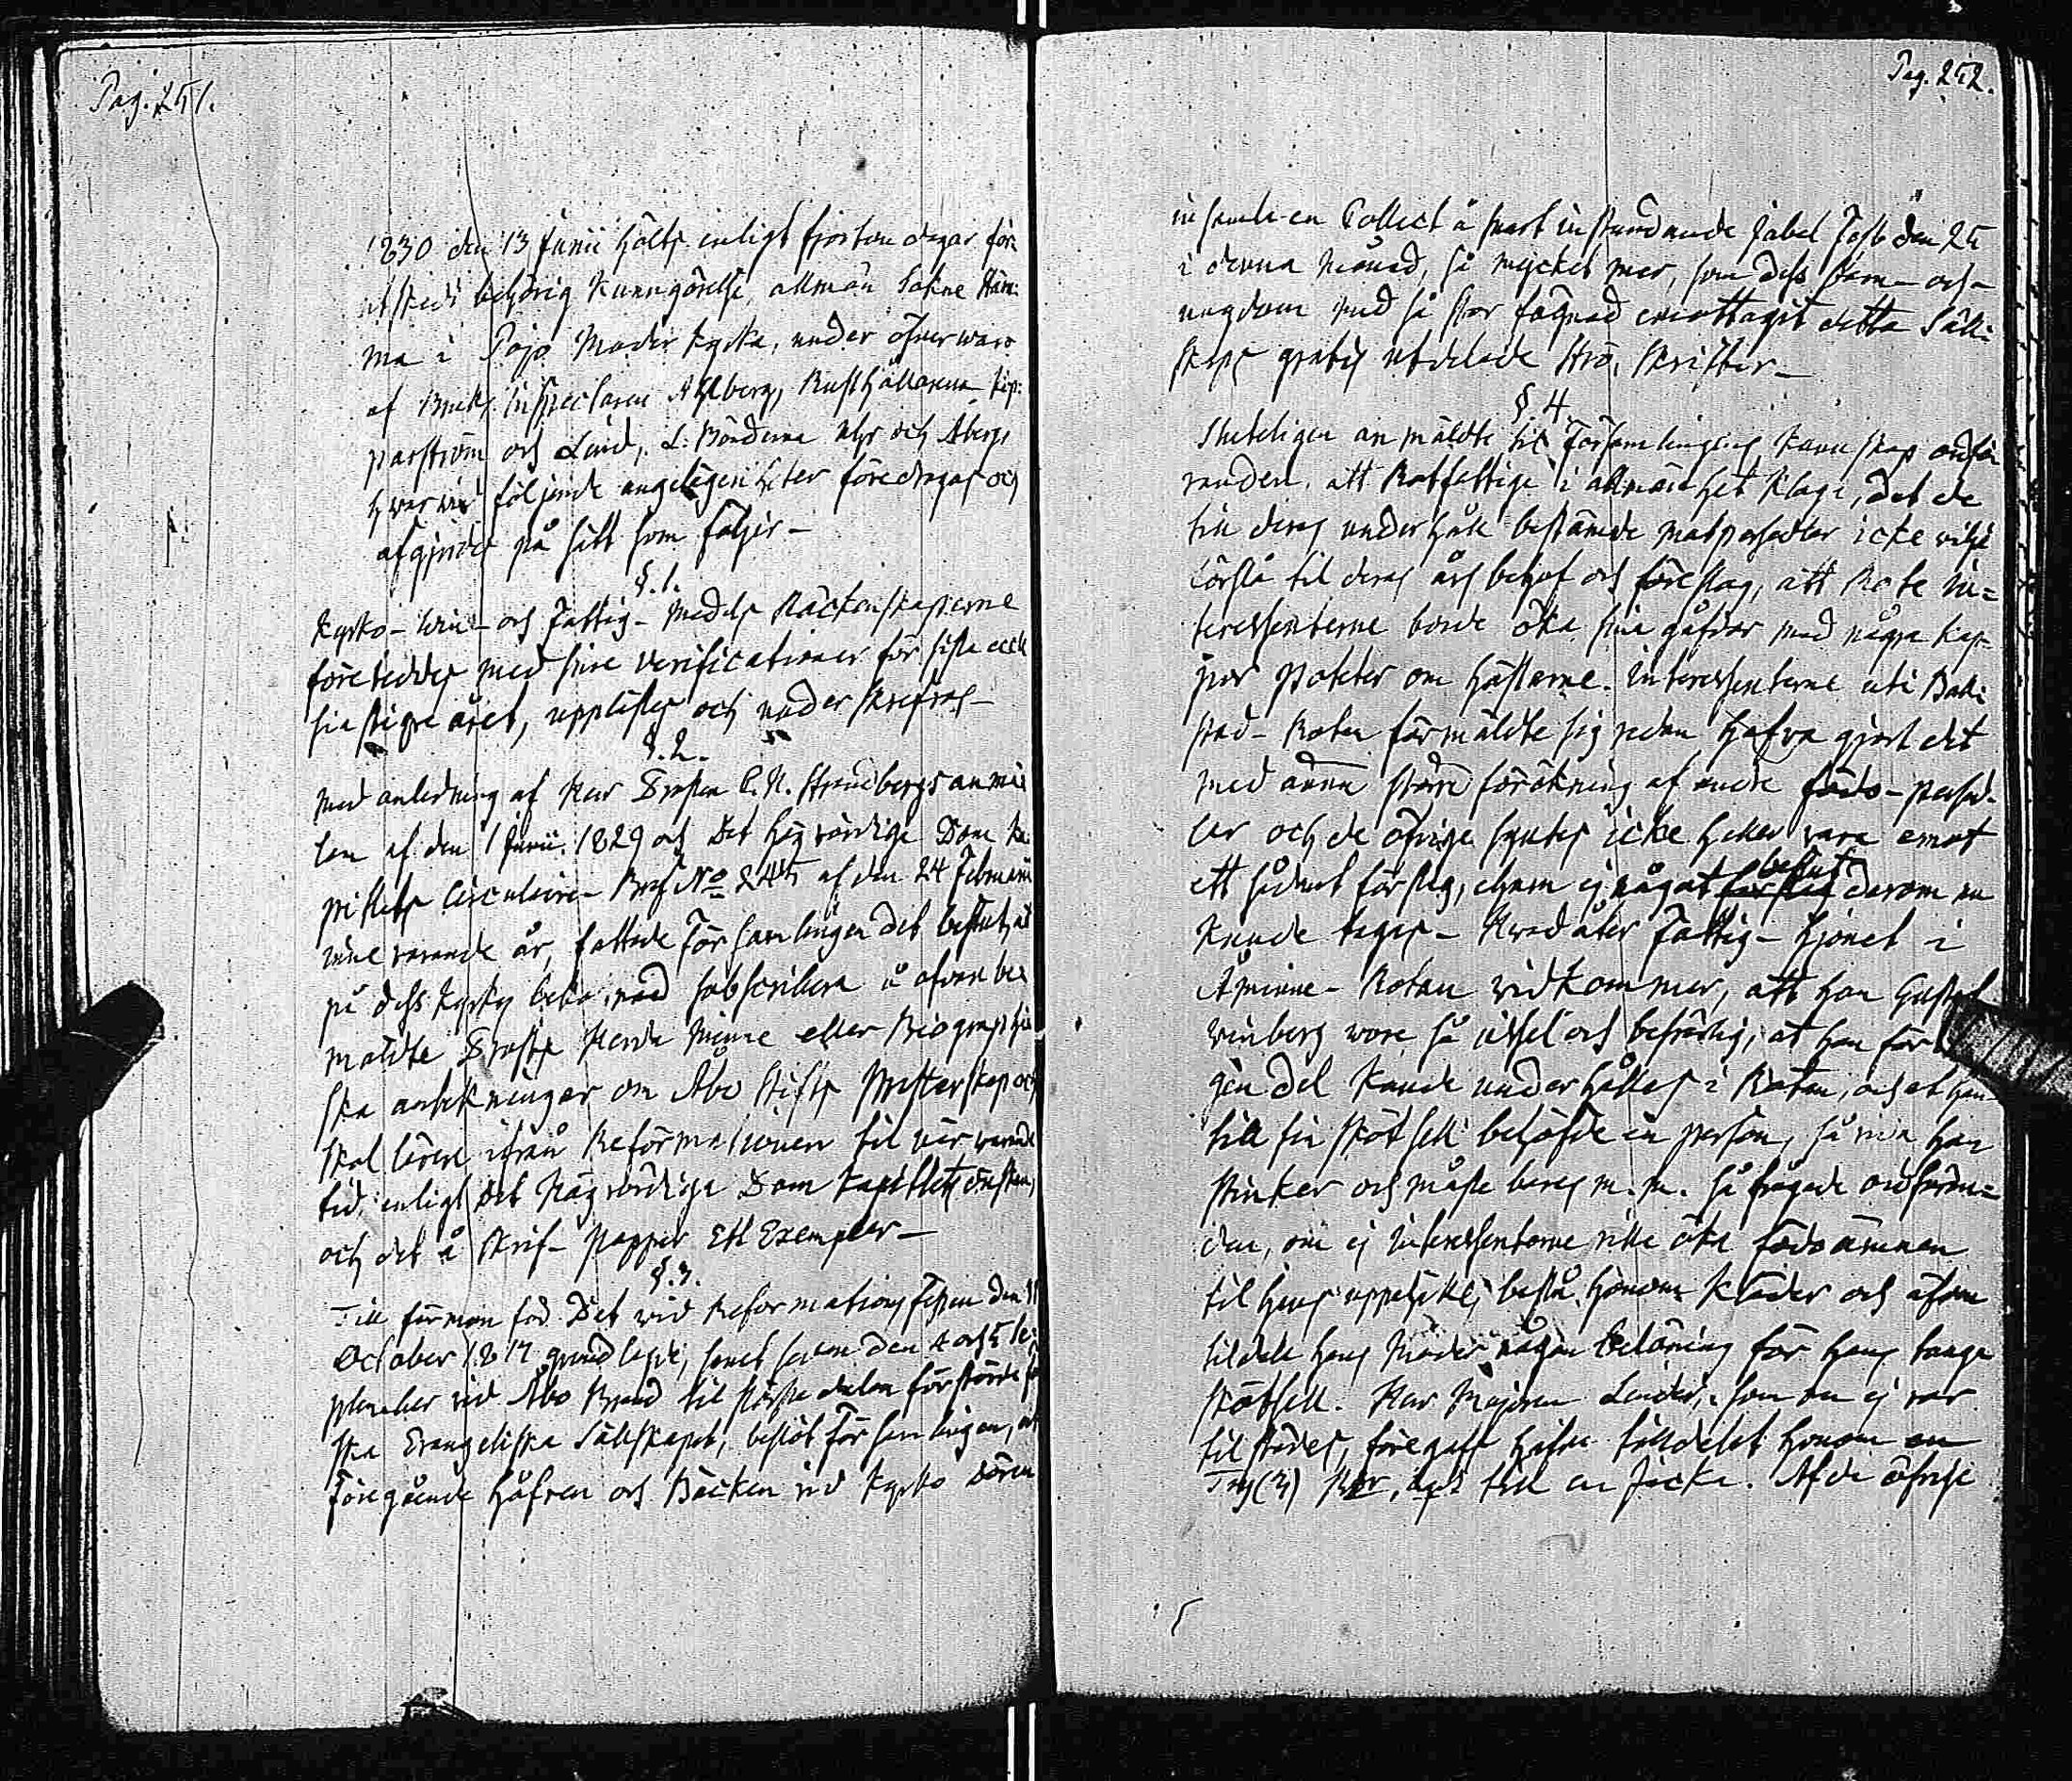 Pag. 251.
1830 den 13 Junii hölts enligt fjorton dagar före
utskedd behörig kunngörelse, allmän Sokne Stäm-
ma i Pojo Moder kyrka, under öfverwaro
af Bruks Inspectoren Ahlberg, Rusthållarena Kop-
parström och Lind, L. Bönderna och Åbergs
hwarvid följande angelägenheter föredrogos och
afgjordes på sätt som följer -
§. 1.
Kyrko- Win- och Fattig- Medels Räckenskaperne
företeddes med sine verificationer för sista eccle-
siastique året, upplästes och underskrefvos -
§. 2.
Med anledning af Herr Prosten C. H. Strandbergs anmä-
lan af den 1 Junii 1829 och Det Högvördige Dom Ka-
pitlets Circulaire- Bref No 245 af den 24 Februarii
inne varande år, fattade Församlingen det beslut, at
på dess Kyrkas bekostnad subscribera å ofvan be-
mäldte Prosts Herda Minne eller Biographi-
ska anteckningar om Åbo Stifts Presterskap och
Skol lärare ifrån Reformationen til närvarande
tid, enligt det Högvördige Dom Kapitlets önskan,
och det å Skrif- papper Ett Exemplar -
§. 3.
Till förmon för Det vid Reformations Festen den 31
October 1817 grundlagde, samt sedan den 4 och 5 Se-
ptember vid Åbo Brand til största delen förstörde Fin-
ska Evangeliska Sällskapet, beslöt Församlingen, at
föregående håfven och Bäcken vid Kyrko dören
Pag. 252.
insamla en Collect å snart instundande Jubel Fest den 25
i denna Månad, så mycket mer, som dess barn- och
ungdom med så stor fägnad emottagit detta Säll-
skaps gratis utdelade Strö, Skrifter -
§. 4
Sluteligen anmäldte til Församlingens kännskap ordfö-
randen, att Rotfattige i allmänhet klaga, det de
till deras underhåll bestämde matpersedlar icke vilja
förslå til deras års behof och föreslog, att Rote In-
teressenterne borde öka sina gåfvor med några kap-
par Potäter om höstarne. Interessenterne uti Bali-
stad- Roten förmäldte sig redan hafva gjort det
med ännu större förökning af andre födo- persed-
lar och de öfrige syntes icke heller vara emot
ett sådant förslag, ehuru ej något förslag beslut derom nu
kunde tagas - Hvad åter Fattig- hjonet i
Åminne- Rotan vidkommer, att han Gustaf
Winberg wore så ussel och besvärlig, at han för in-
gen del kunde underhållas i Rotan, och at han
till sin skötsel behöfde en person, så när han
stinker och måste bäras m. m. så frågade ordföran-
den, om ej Interessenterne ville öka födoämnen
til hans uppehälle, bestå honom kläder och äfven
tildela hans Moder någon belöning för hans tunga
skötsel. Herr Majoren Linder, som nu ej var
tilstädes, föregafs hafva tilldelat honom
Try (3) Rbr, och till en Jacka. Af de öfrige